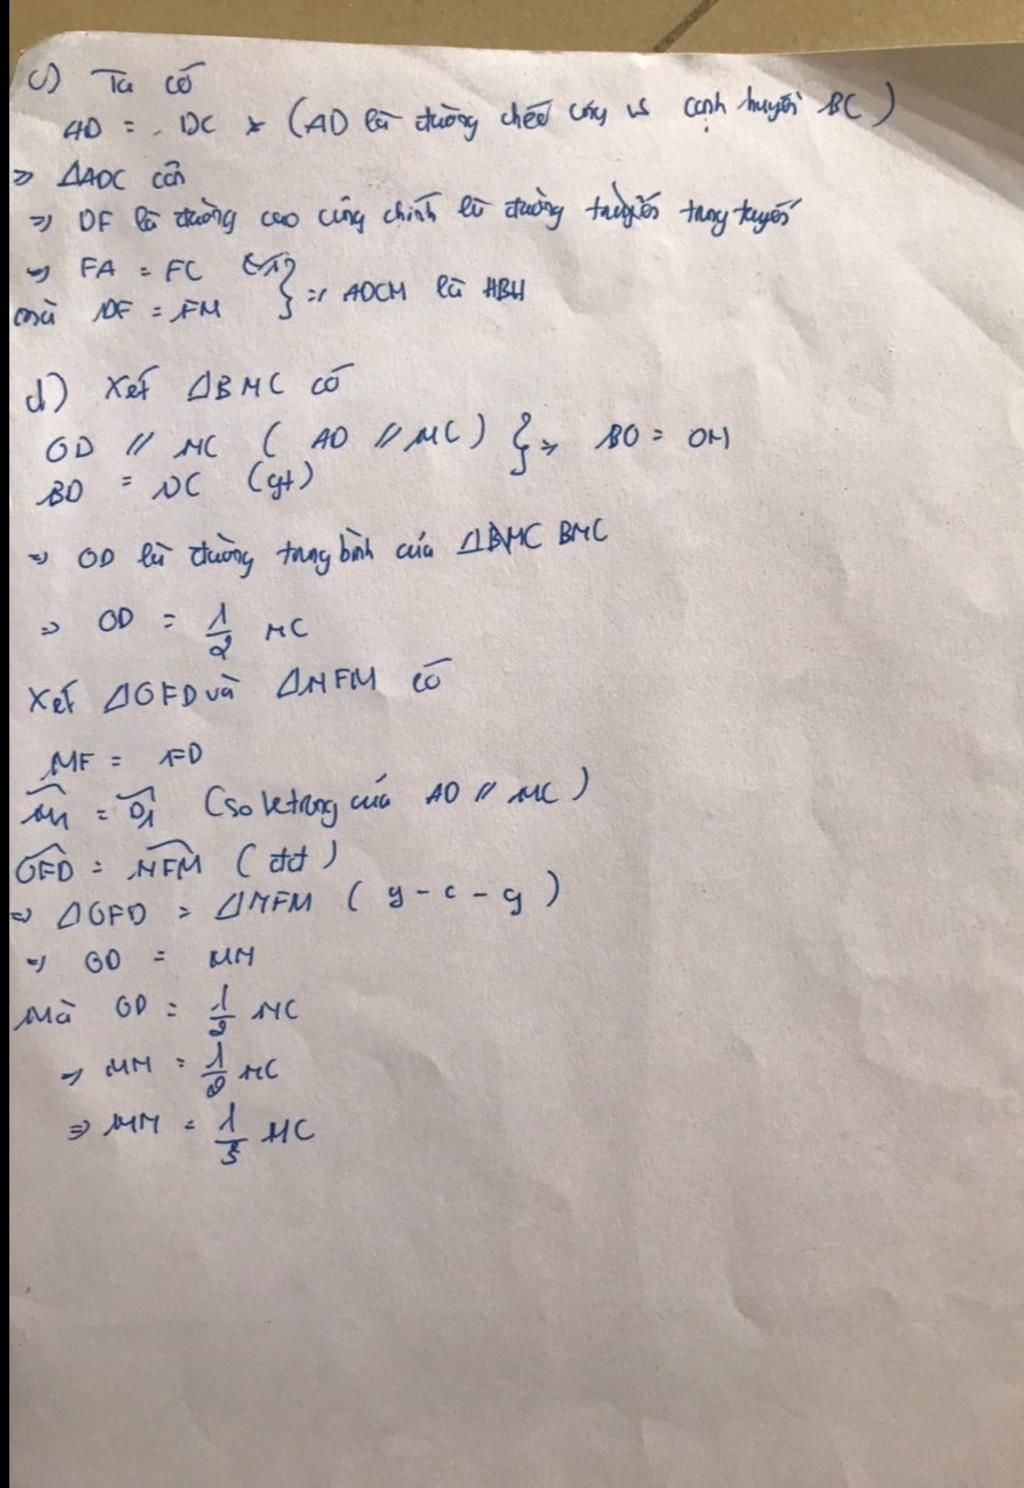 c) Ta có
AD = DC (AD là đường chéo ứng vs cạnh huyền BC)
=> ΔADC cân
=> DF là đường cao cũng chính là đường trung tuyến
=> FA = FC
mà DF = FM } => ADCM là HBH
d) Xét ΔBMC có
OD // MC ( AD // MC ) } => BO = OM
BD = DC (gt)
=> OD là đường trung bình của ΔBMC BMC
=> OD = 1/2 MC
Xét ΔOFD và ΔNFM có
MF = FD
M1 = D1 (so le trong của AD // MC )
OFD = NFM ( đđ )
=> ΔOFD = ΔNFM ( g - c - g )
=> OD = MN
Mà OD = 1/2 MC
=> MN = 1/2 MC
=> MN = 1/3 MC